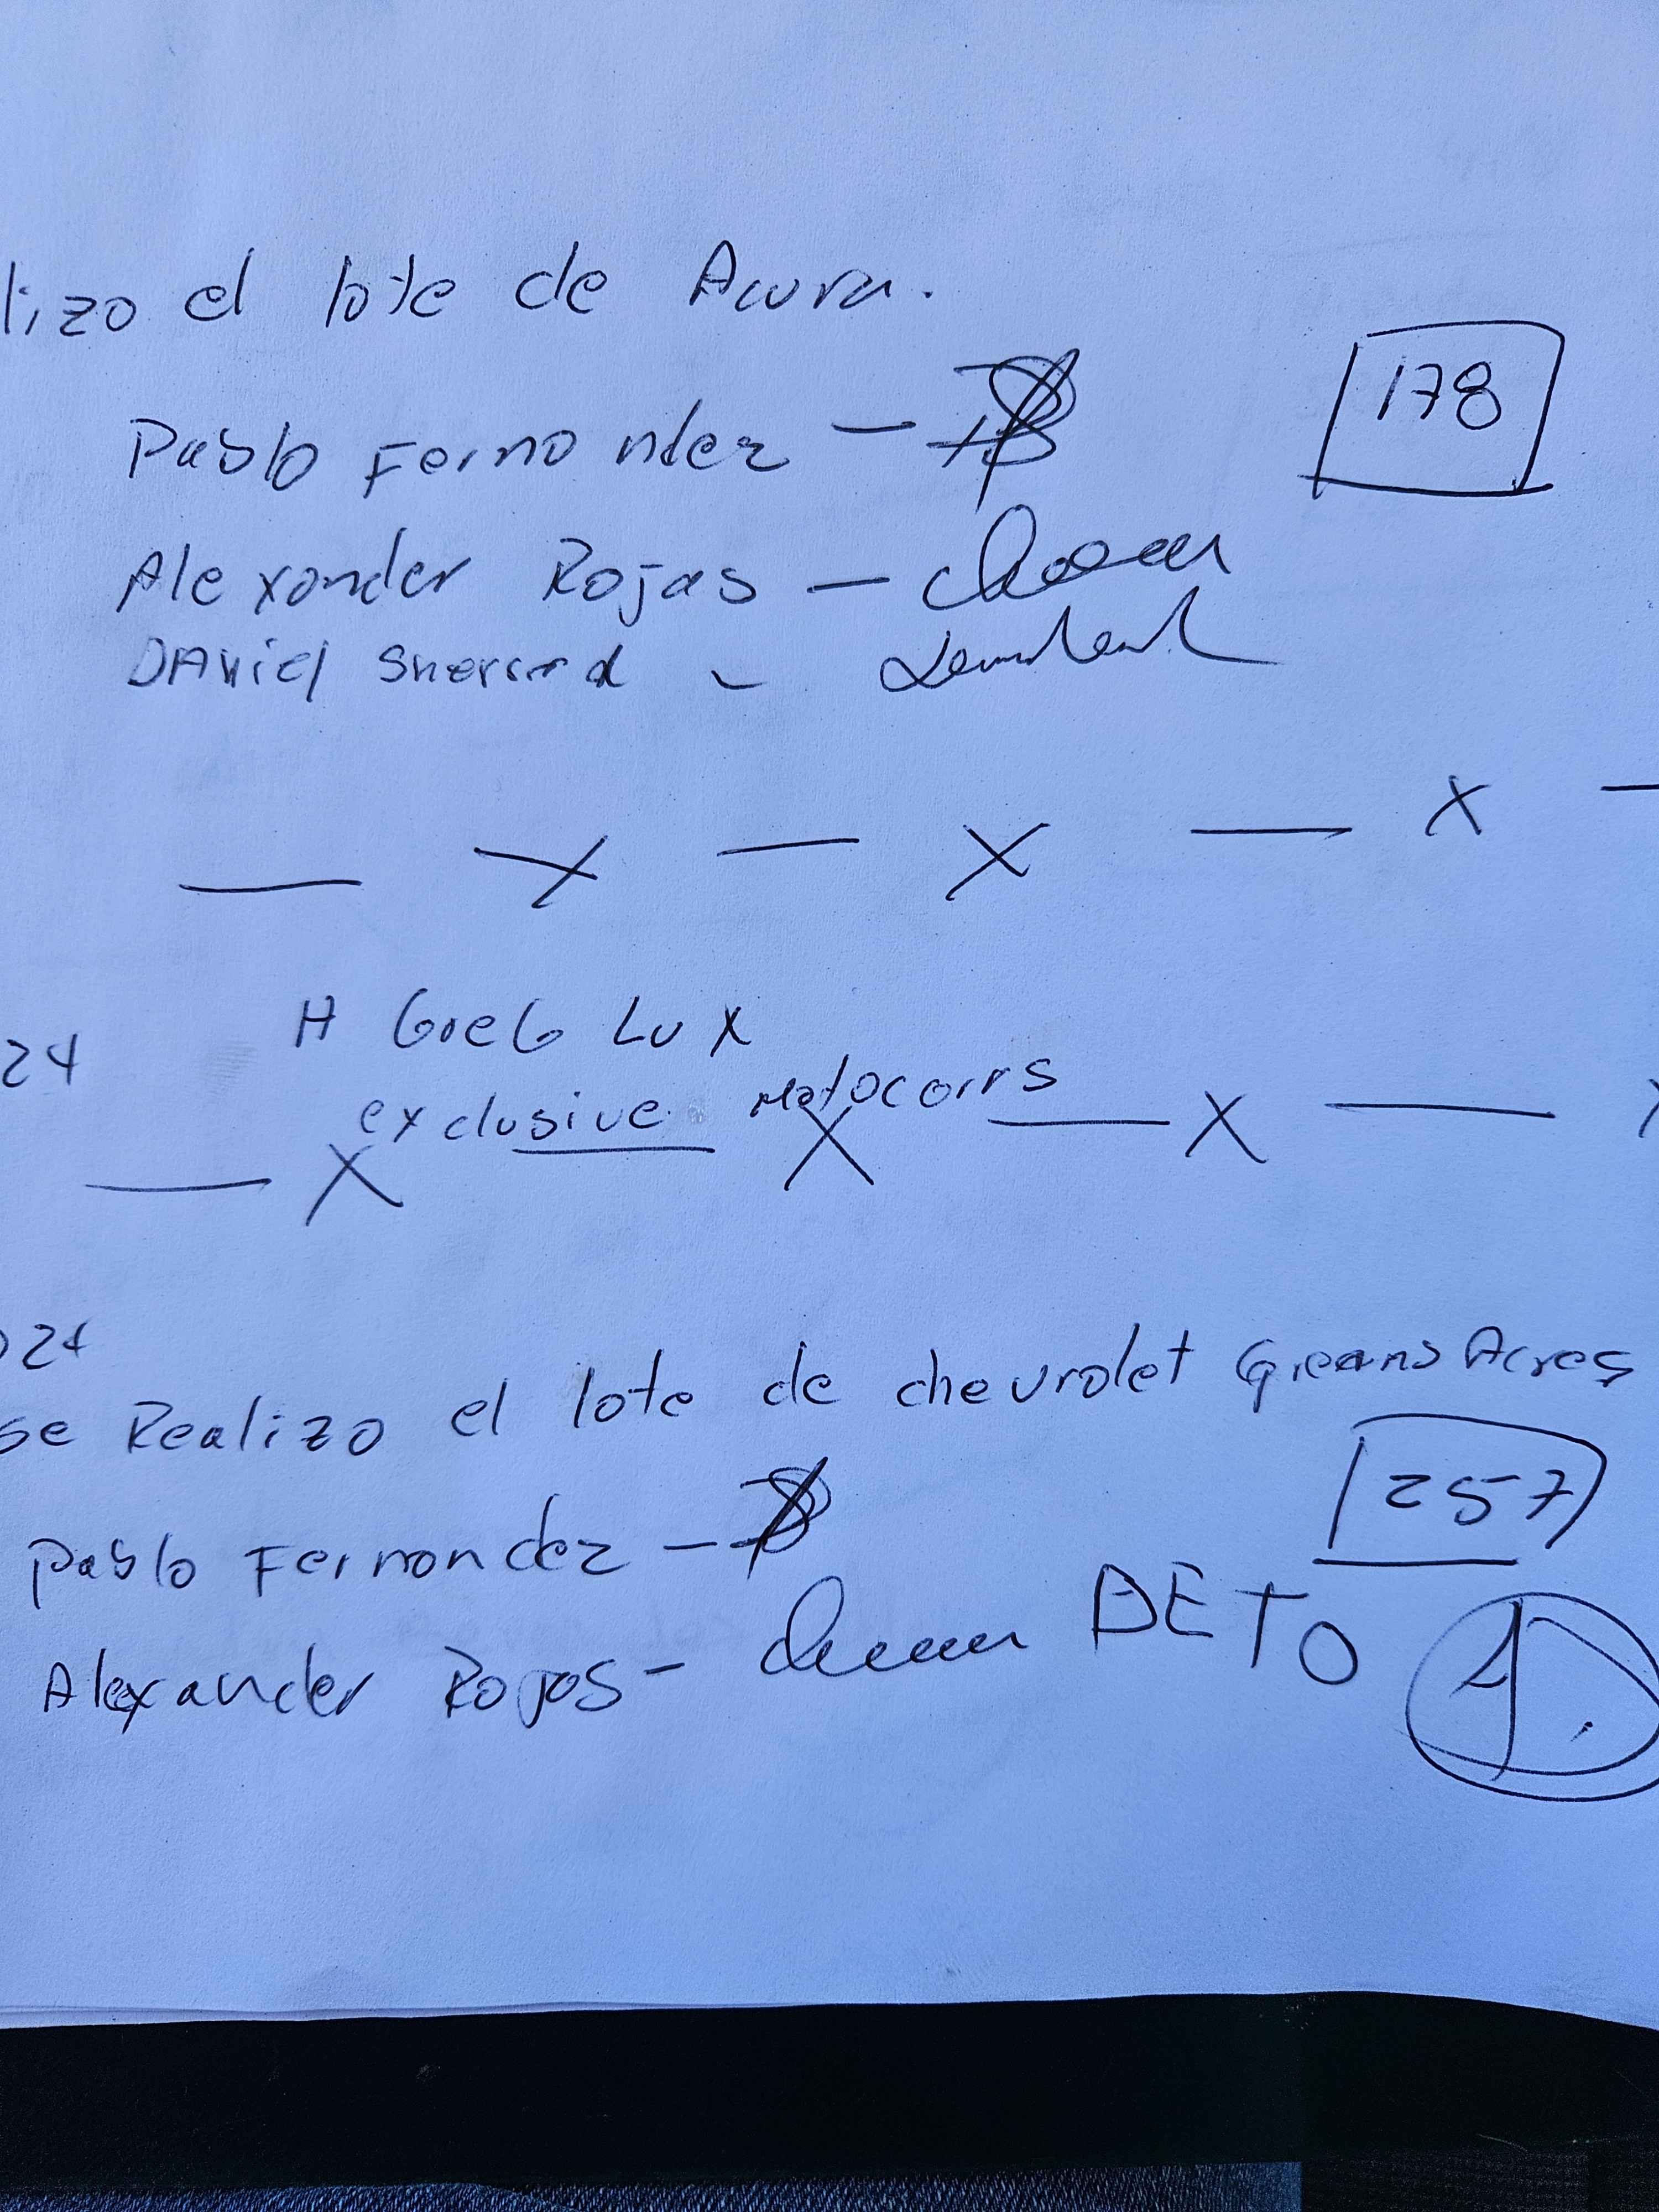 lizo el lote de Acura.
178
Pablo Fernonder –
Alexonder Rojas –
DAviel Sherrard –
— X — X — X —
24 H GreG Lux
exclusive Motocorrs
— X — X — X —
024
se Realizo el lote de chevrolet Greens Acres
257
Pablo Fernondez –
Alexander Rojas – BETO